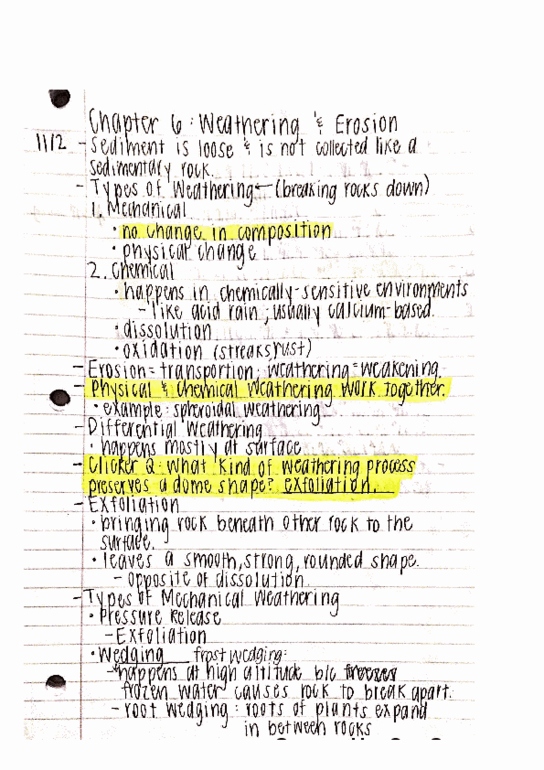 Chapter 6: Weathering & Erosion
11/2 - Sediment is loose & is not collected like a
sedimentary rock.
- Types of Weathering - (breaking rocks down)
1. Mechanical
• no change in composition
• physical change
2. Chemical
• happens in chemically-sensitive environments
- like acid rain, usually calcium-based.
• dissolution
• oxidation (streaks, rust)
- Erosion = transportion; weathering = weakening.
- Physical & Chemical Weathering work together.
• example: spheroidal weathering
- Differential Weathering
• happens mostly at surface
- Clicker Q: What kind of weathering process
preserves a dome shape? exfoliation.
- Exfoliation
• bringing rock beneath other rock to the
surface.
• leaves a smooth, strong, rounded shape.
- opposite of dissolution
- Types of Mechanical Weathering
• Pressure Release
- Exfoliation
• Wedging frost wedging:
- happens at high altitude b/c
frozen water causes rock to break apart.
- root wedging: roots of plants expand
in between rocks